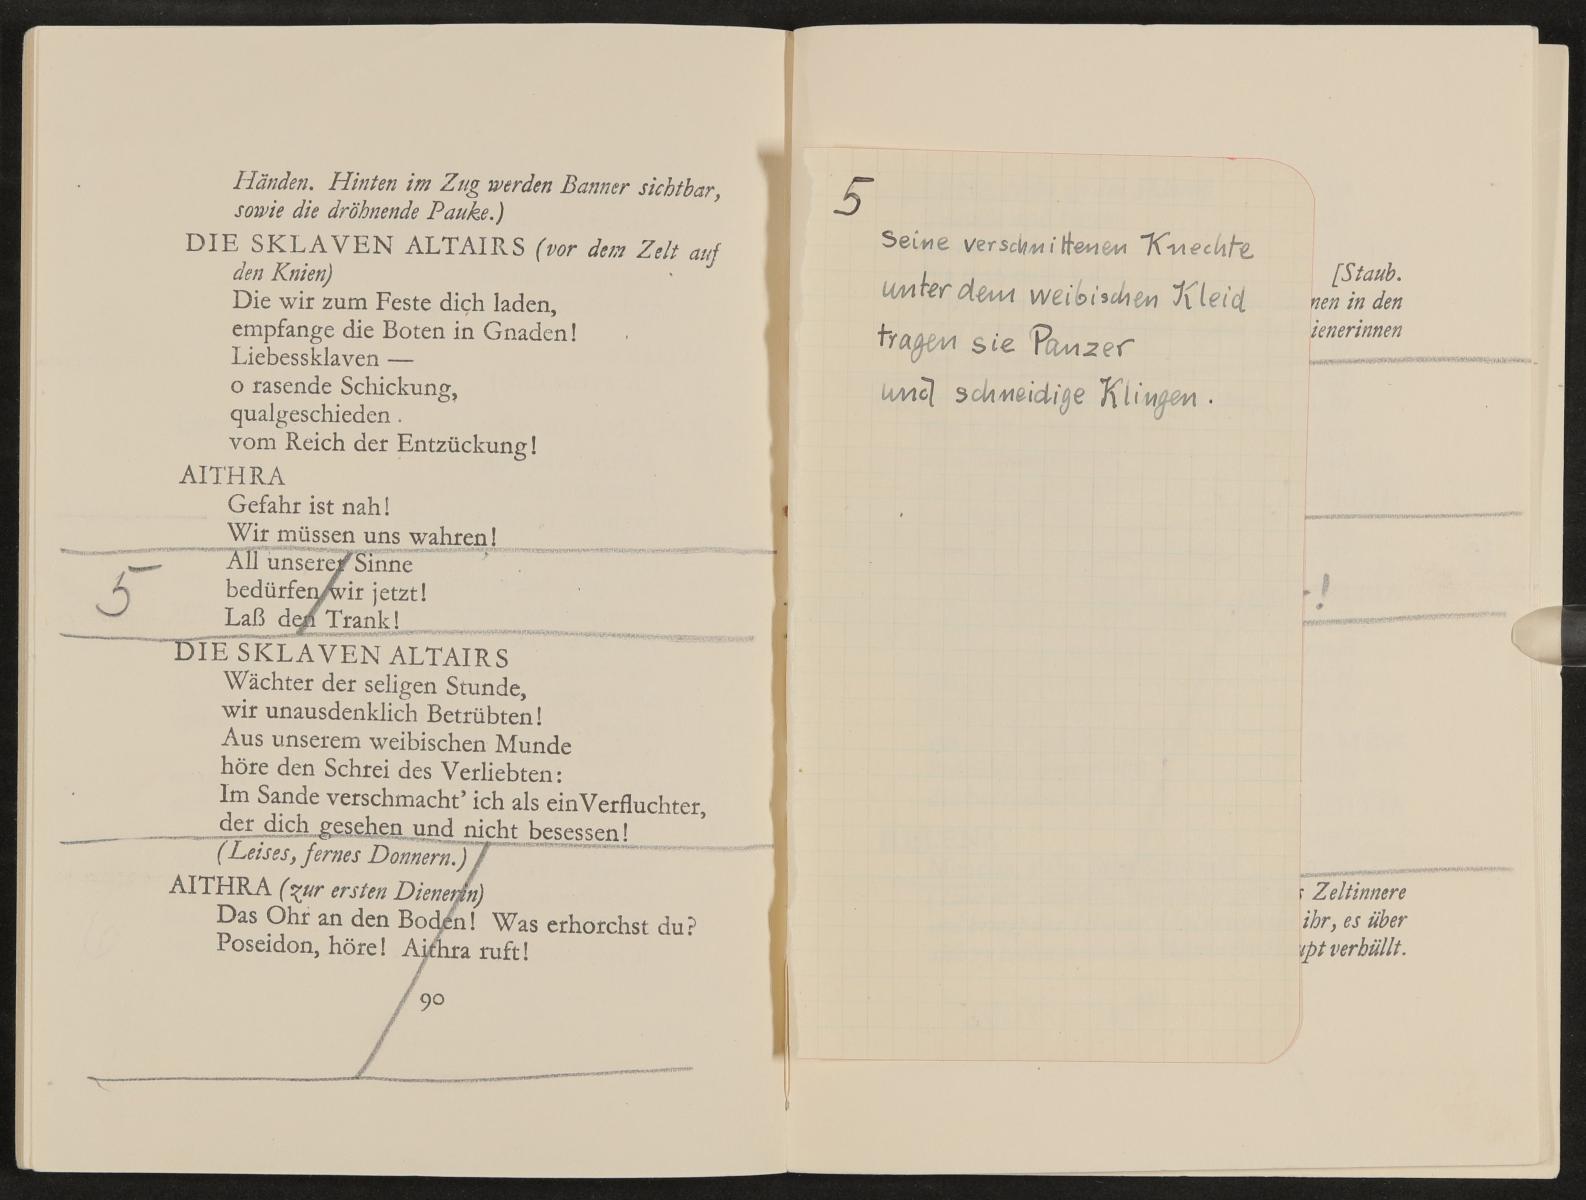 Händen. Hinten im Zug werden Banner sichtbar,
sowie die dröhnende Pauke.)
DIE SKLAVEN ALTAIRS (vor dem Zelt auf
den Knien)
Die wir zum Feste dich laden,
empfange die Boten in Gnaden!
Liebessklaven —
o rasende Schickung,
qualgeschieden
vom Reich der Entzückung!
AITHRA
Gefahr ist nah!
Wir müssen uns wahren!
All unserer Sinne
bedürfen wir jetzt!
Laß den Trank!
5
DIE SKLAVEN ALTAIRS
Wächter der seligen Stunde,
wir unausdenklich Betrübten!
Aus unserem weibischen Munde
höre den Schrei des Verliebten:
Im Sande verschmacht' ich als ein Verfluchter,
der dich gesehen und nicht besessen!
(Leises, fernes Donnern.)
AITHRA (zur ersten Dienerin)
Das Ohr an den Boden! Was erhorchst du?
Poseidon, höre! Aithra ruft!
90
5
seine verschnittenen Knechte
unter dem weibischen Kleid
tragen sie Panzer
und schneidige Klingen.
[Staub.
nen in den
ienerinnen
!
s Zeltinnere
ihr, es über
upt verhüllt.